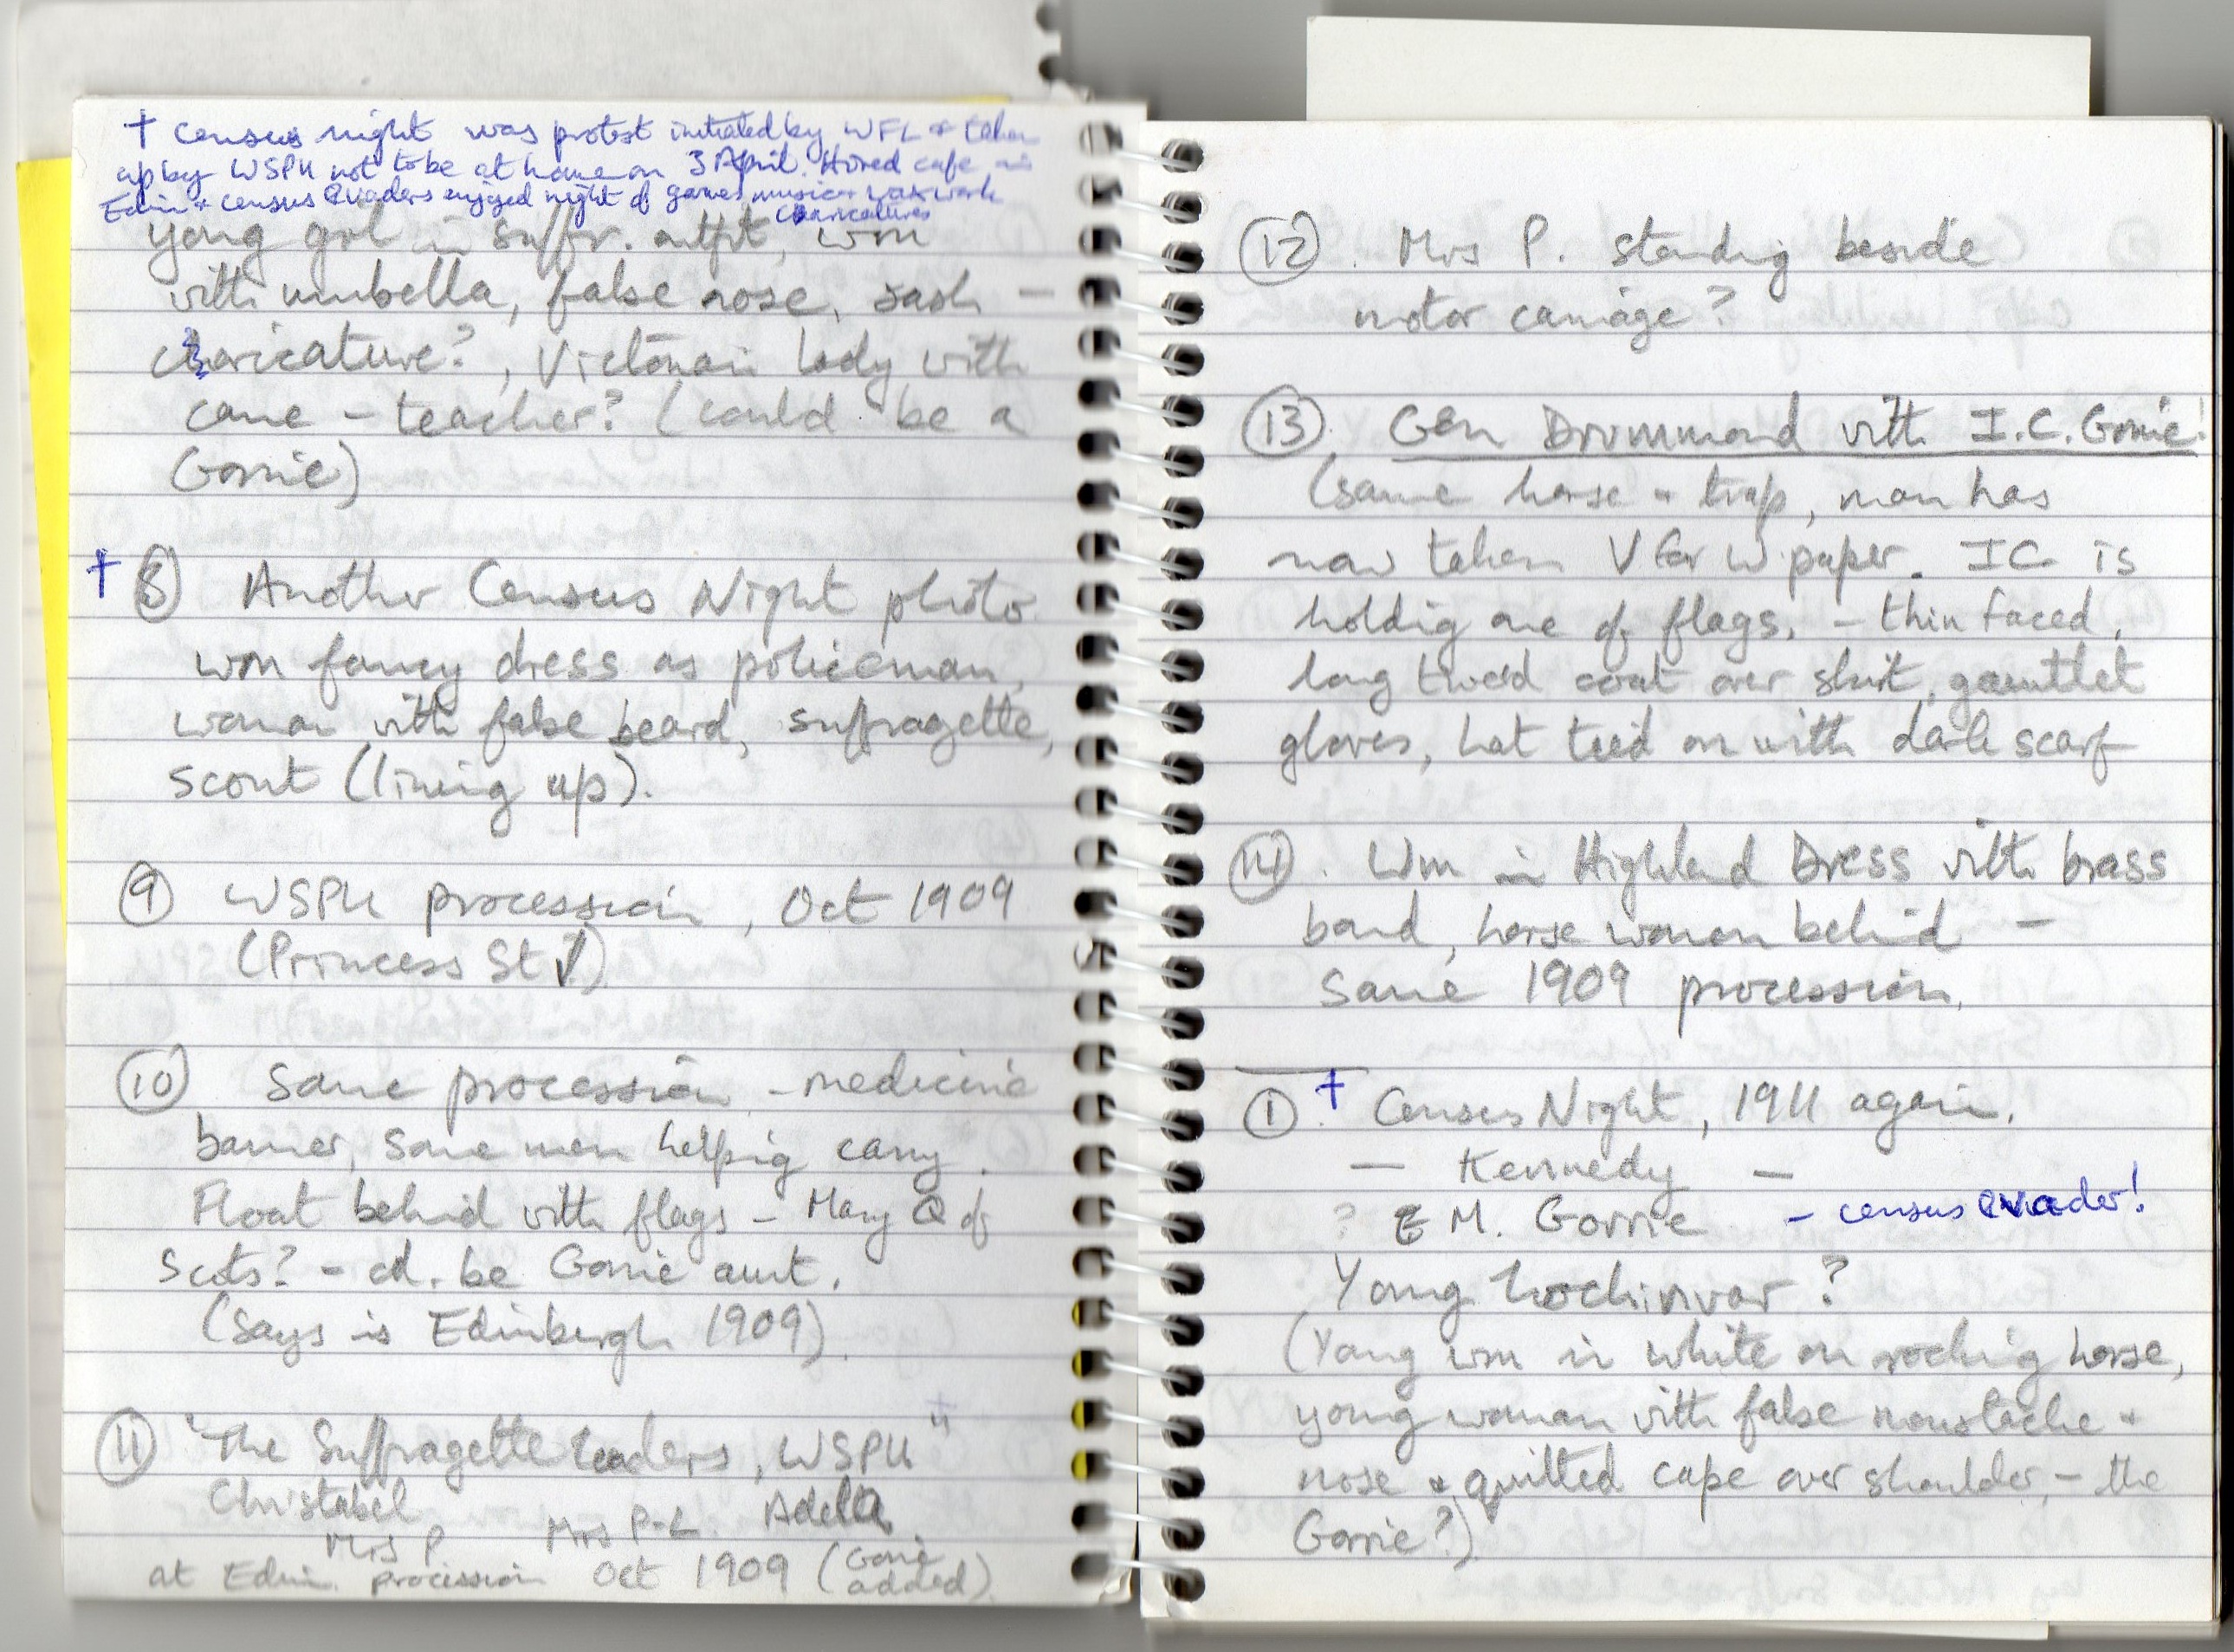 † Census night was protest initiated by WFL & taken
up by WSPU not to be at home on 3 April. Hired cafe in
Edin & census evaders enjoyed night of games music & waxwork
caricatures
young girl in suffr. outfit, wm
with umbella, false nose, sash –
caricature?, Victorian lady with
cane – teacher? (could be a
Gorrie)
† 8 Another Census Night photo
wm fancy dress as policeman,
woman with false beard, suffragette,
scout (lining up).
9 WSPU procession, Oct 1909
(Princess St ✓)
10 Same procession – medicine
banner, some men helping carry.
Float behind with flags – Mary Q of
Scots? – cd. be Gorrie aunt.
(says is Edinburgh 1909).
11 "The Suffragette Leaders, WSPU"
Christabel
Mrs P Mrs P-L. Adela
at Edin. procession Oct 1909 (Gorrie
added).
12. Mrs P. standing beside
motor carriage?
13. Gen Drummond with I.C. Gorrie!
(same horse & trap, man has
now taken V for W paper. IC is
holding one of flags. – thin faced,
long tweed coat over skirt, gauntlet
gloves, hat tied on with dark scarf
14. Wm in Highland Dress with brass
band, horse woman behind –
same 1909 procession.
1. † Census Night, 1911 again.
— Kennedy —
? E M. Gorrie – census evader!
Young Lochinvar?
(Young wm in white on rocking horse,
young woman with false moustache &
nose & quilted cape over shoulder, – the
Gorrie?)